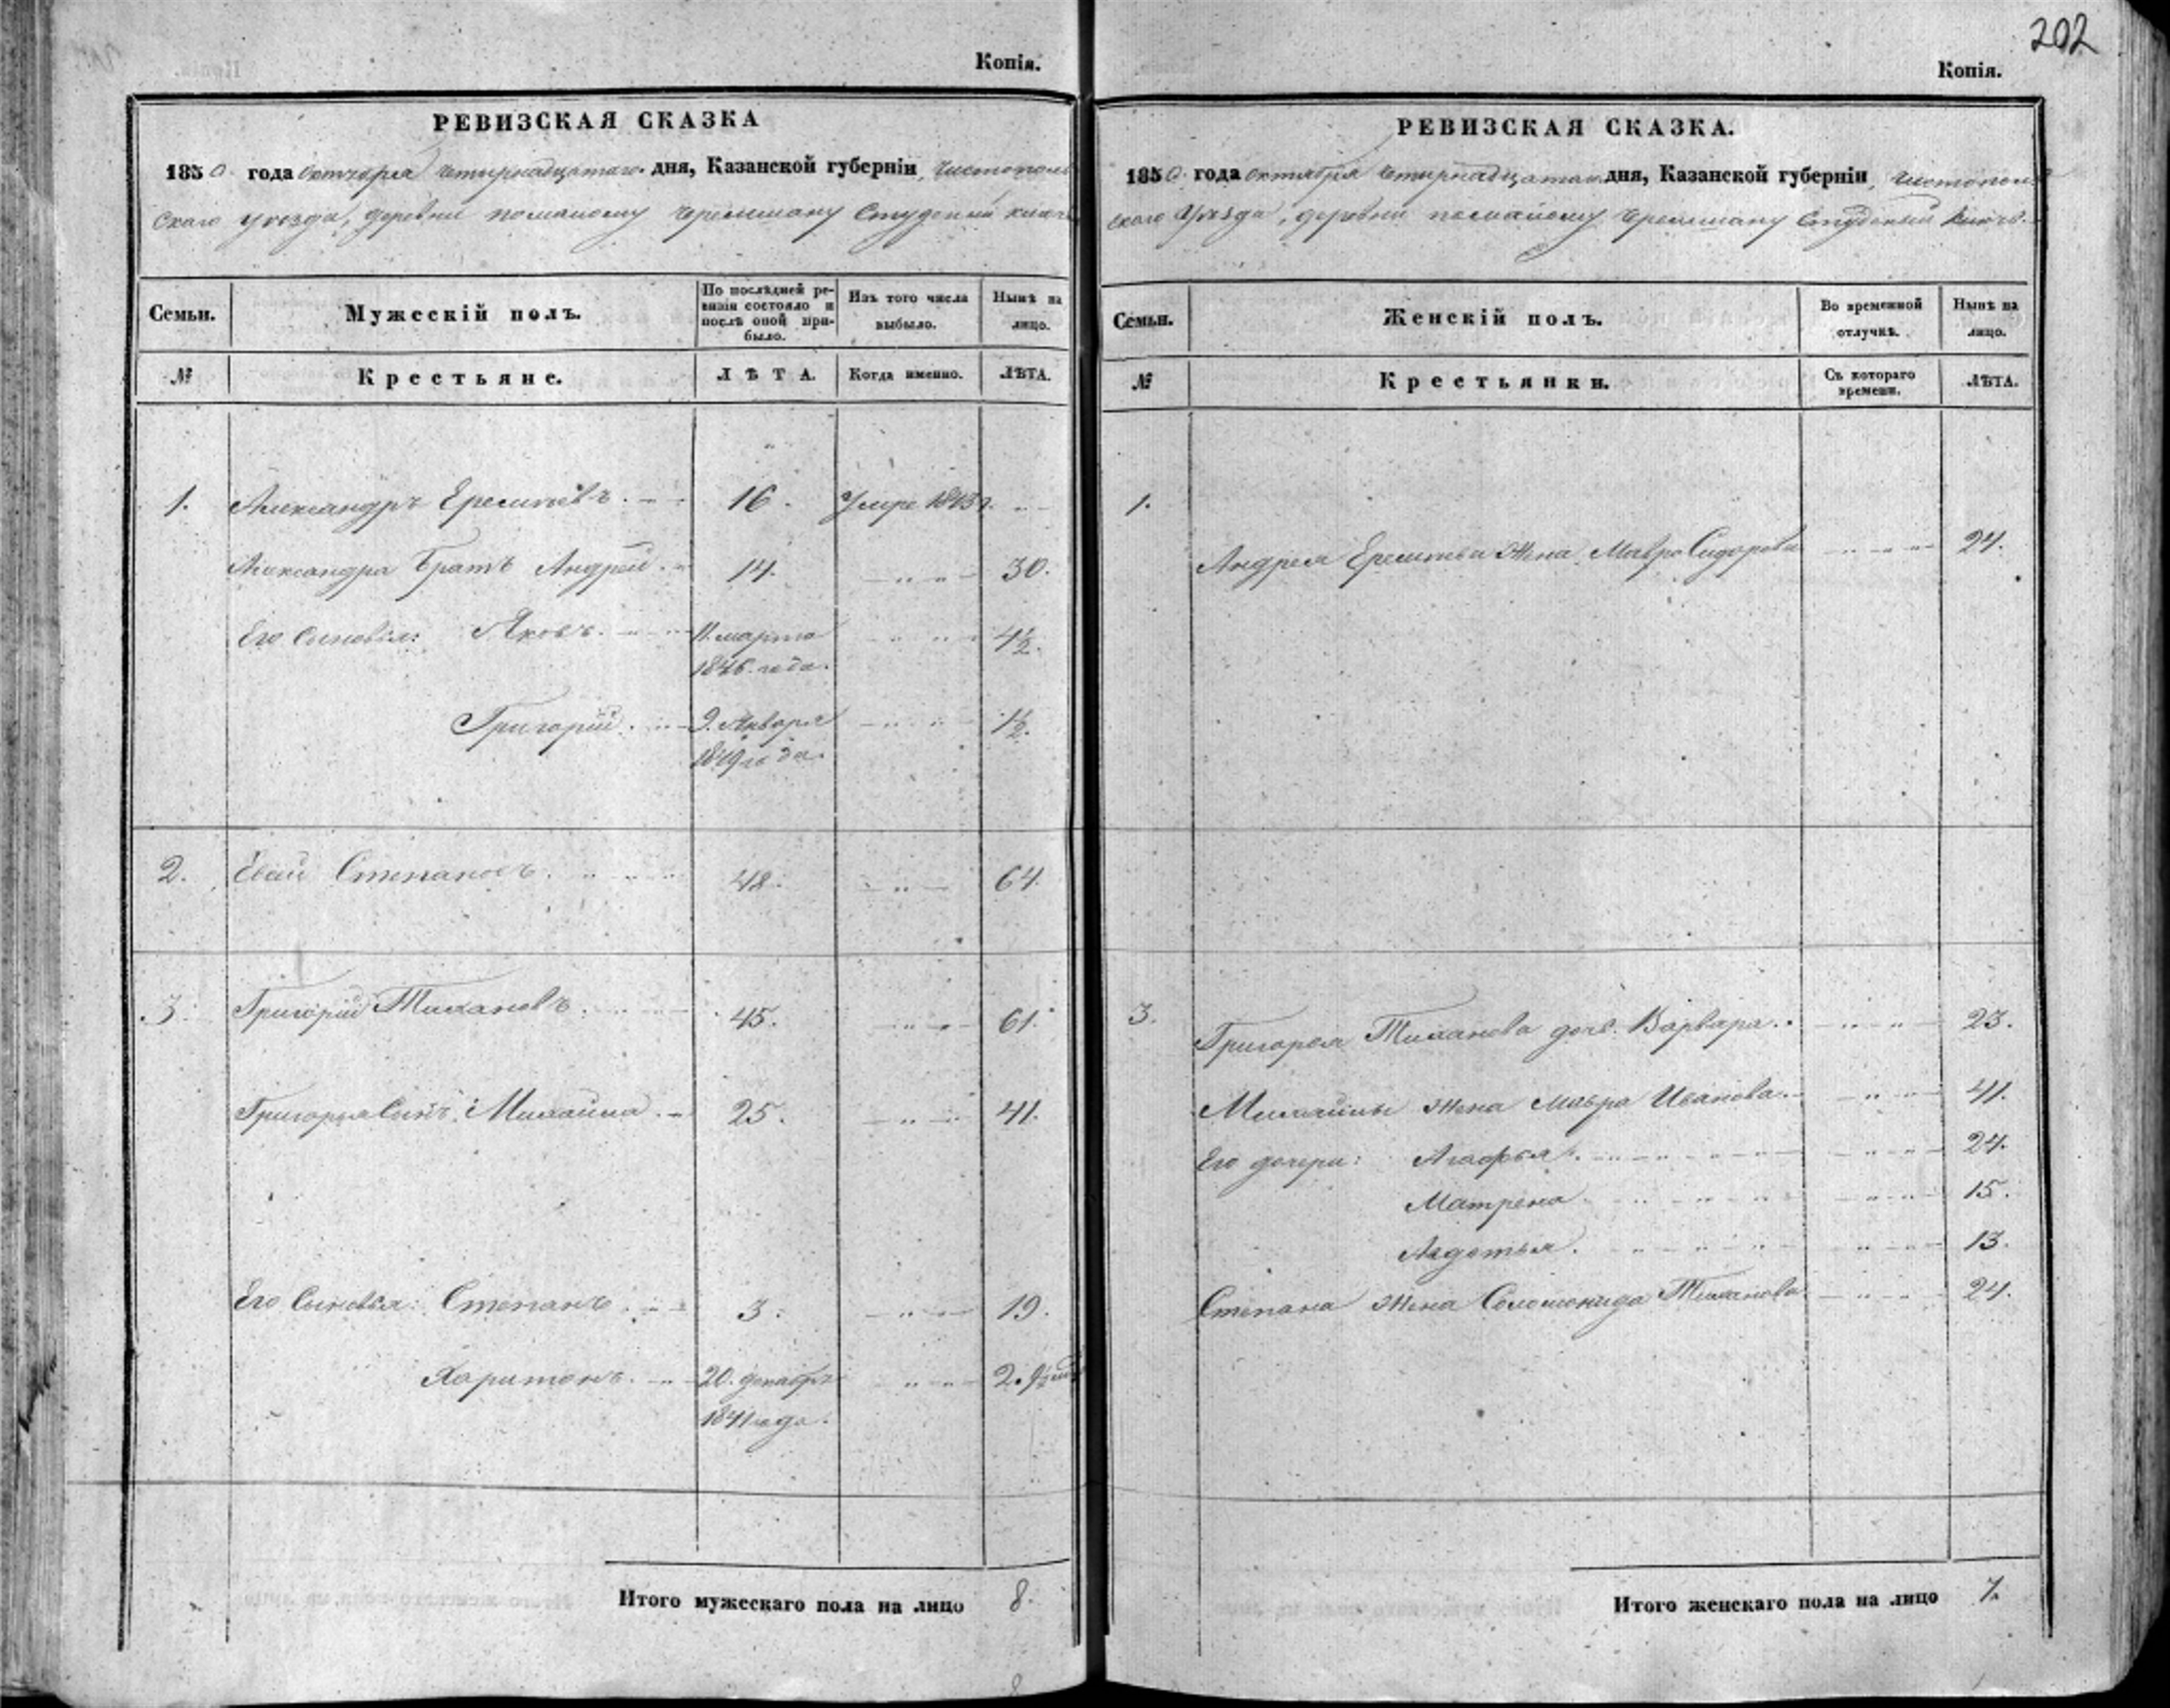 202
Копія.
РЕВИЗСКАЯ СКАЗКА
1850 года октября четырнадцатаго дня, Казанской губерніи, Чистополь
скаго уѣзда, деревни помалому черемшану Студеный ключь
Семьи.
Мужескій полъ.
По послѣдней ре-
визіи состояло и
послѣ оной при-
было.
Изъ того числа
выбыло.
Нынѣ на
лицо.
№
Крестьяне.
ЛѢТА.
Когда именно.
ЛѢТА.
1. Александръ Еремѣевъ. 16. Умре 1843 г.
Александра братъ Андрей. 14. 30.
Его сыновья: Яковъ. 11. марта 4½.
1846. года.
Григорій. 9. Января 1½.
1849 года.
2. Степановъ. 48. 64.
3. Григорій Тихановъ. 45. 61.
Григорья Сынъ: Михайла. 25. 41.
Его Сыновья: Степанъ. 3. 19.
Харитонъ. 20. декабря
1841 года.
Итого мужескаго пола на лицо 8.
8
Копія.
РЕВИЗСКАЯ СКАЗКА.
1850 года октября четырнадцатаго дня, Казанской губерніи, Чистополь
скаго Уѣзда, деревни помалому Черемшану Студеный Ключь.
Семьи.
Женскій полъ.
Во временной
отлучкѣ.
Нынѣ на
лицо.
№
Крестьянки.
Съ котораго
времени.
ЛѢТА.
1.
Андрея Еремѣева Жена Мавра Сидорова 24.
3. Григорья Тиханова дочь. Варвара. 23.
Михайлы жена Мавра Иванова. 41.
Его дочери: Агафья. 24.
Матрена 15.
Авдотья. 13.
Степана жена Соломонида Тиханова 24.
Итого женскаго пола на лицо 7.